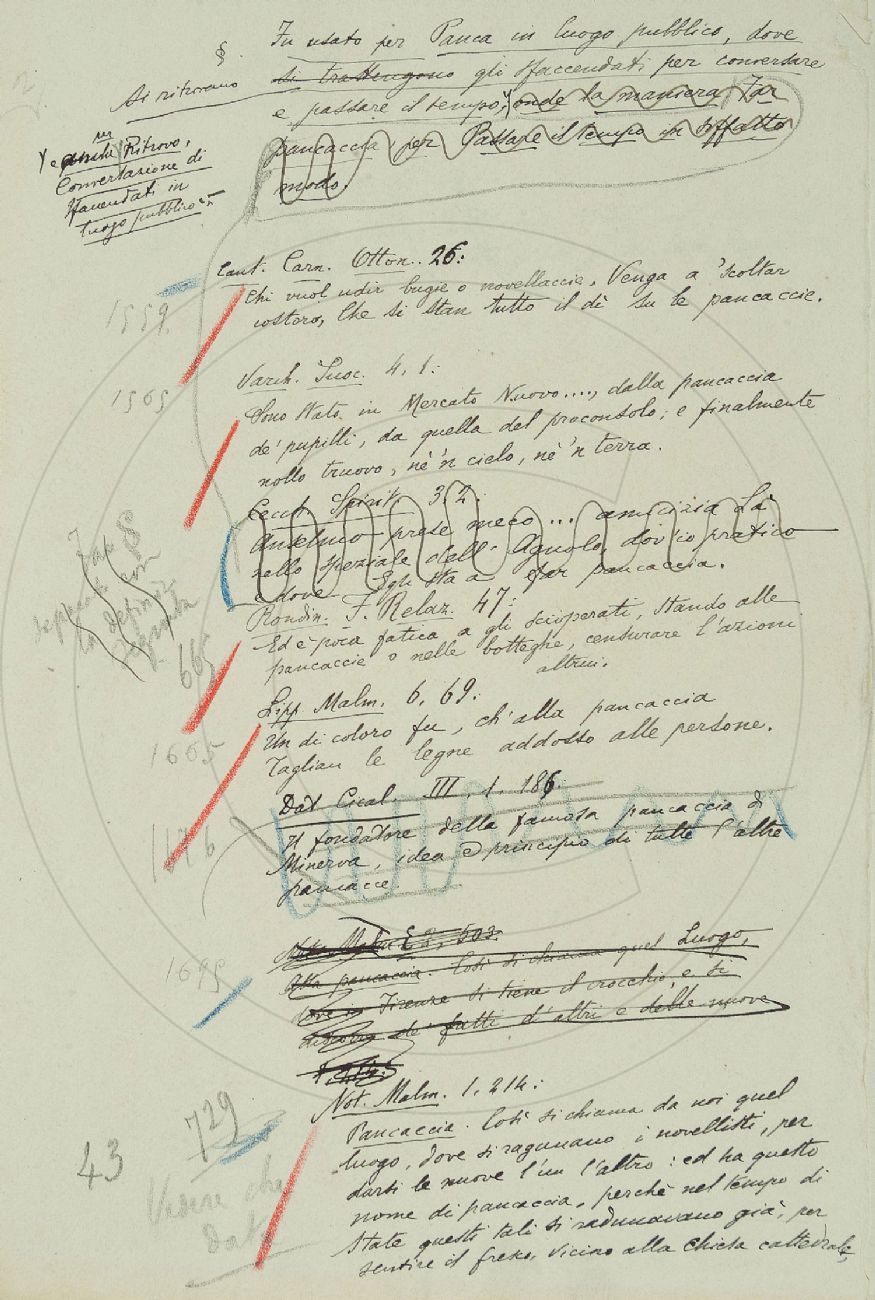 §. Fu usato per Panca in luogo pubblico, dove
si trattengono gli sfaccendati per conversare
Si ritrovano
e passare il tempo; onde la maniera Far
pancaccia, per Passare il tempo in siffatto
modo.
e anche Ritrovo,
Conversazione di
sfacendati in
luogo pubblico.
Cant. Carn. Otton. 26:
Chi vuol udir bugie o novellaccie, Venga a 'scoltar
costoro, Che si stan tutto il dì su le pancaccie.
1559.
Varch. Suoc. 4, 1:
1565
Sono stato in Mercato Nuovo...., dalla pancaccia
de' pupilli, da quella del proconsolo; e finalmente
nollo truovo, nè 'n cielo, nè 'n terra.
Cecch. Spirit. 3, 2:
Anselmo prese meco ... amicizia Là
nello speziale dell' Agnolo, dov' io pratico
e dove Egli sta a far pancaccia.
Far §
separato con
la definiz.
seguente
Rondin. F. Relaz. 47:
Ed è poca fatica a gli scioperati, stando alle
pancaccie o nelle botteghe, censurare l'azioni
altrui.
665
Lipp. Malm. 6, 69:
Un di coloro fu, ch'alla pancaccia
Taglian le legne addosso alle persone.
1665
Dat. Cical. III. 1. 186:
Il fondatore della famosa pancaccia di
Minerva, idea e principio di tutte l'altre
pancacce
1676
Not. Malm. 2, 503:
Alla pancaccia. Così si chiama quel Luogo,
dove in Firenze si tiene il crocchio, e si
discorre de' fatti d'altri e delle nuove
1695
Not. Malm. 1, 214:
Pancaccia. Così si chiama da noi quel
luogo, dove si ragunano i novellisti, per
darsi le nuove l'un l'altro: ed ha questo
nome di pancaccia, perchè nel tempo di
state questi tali si radunavano già, per
sentire il fresco, vicino alla chiesa cattedrale,
729
43
Vedere che
data